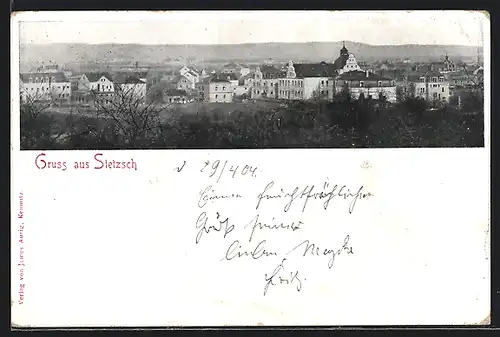 Gruss aus Sietzsch
d 29/4 04.
Einen feuchtfröhlichen
Gruß seiner
lieben Magda
Fritz.
Verlag von James Aurig, Kemnitz